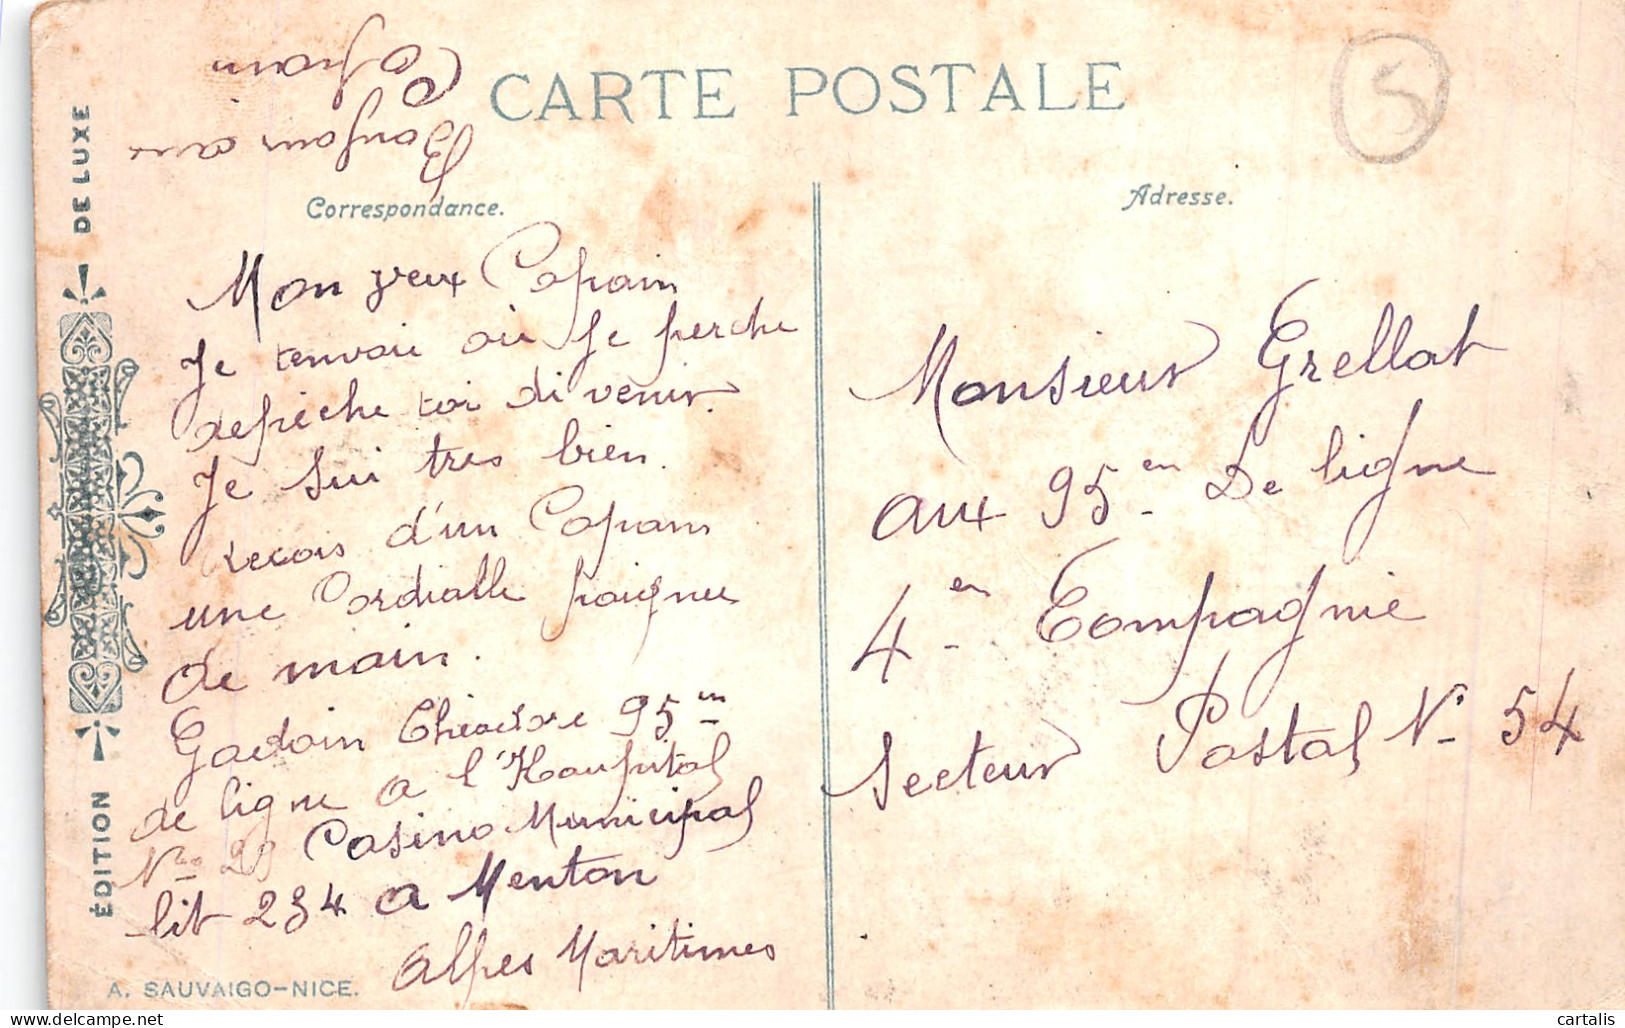 Bonjour aux
Copain
CARTE POSTALE
5
Correspondance.
Adresse.
Mon yeux Copain
Je tenvoie où je perche
depèche toi di venir.
Je sui tres bien.
recois d'un Copain
une Cordialle poignee
de main.
Gadoin Theodore 95 en
de ligne a l'Haupital
No 29 Casino Municipal
lit 234 a Menton
Alpes Maritimes
Monsieur Grellat
aux 95 en De ligne
4 en Compagnie
Secteur Postal No 54
ÉDITION DE LUXE
A. SAUVAIGO-NICE.
cartalis